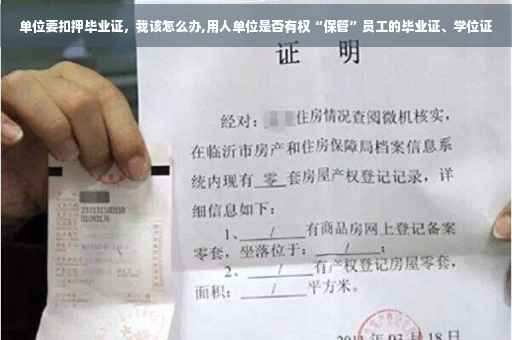 单位要扣押毕业证，我该怎么办,用人单位是否有权“保管”员工的毕业证、学位证
证 明
经对：住房情况查阅微机核实，
在临沂市房产和住房保障局档案信息系
统内现有 零 套房屋产权登记记录，详
细信息如下：
1、 / 有商品房网上登记备案
零套，坐落位于： / ；
2、 / 有产权登记房屋零套，
面积： / 平方米。
03月18日